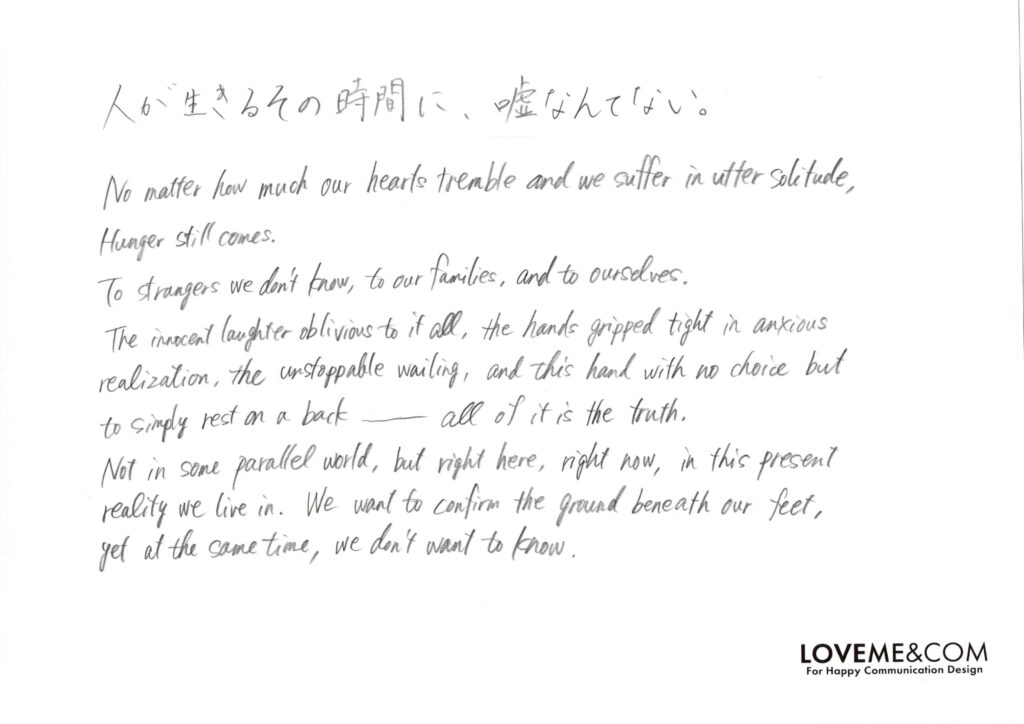 人が生きるその時間に、嘘なんてない。
No matter how much our hearts tremble and we suffer in utter solitude,
Hunger still comes.
To strangers we don't know, to our families, and to ourselves.
The innocent laughter oblivious to it all, the hands gripped tight in anxious
realization, the unstoppable wailing, and this hand with no choice but
to simply rest on a back —— all of it is the truth.
Not in some parallel world, but right here, right now, in this present
reality we live in. We want to confirm the ground beneath our feet,
yet at the same time, we don't want to know.
LOVEME&COM
For Happy Communication Design